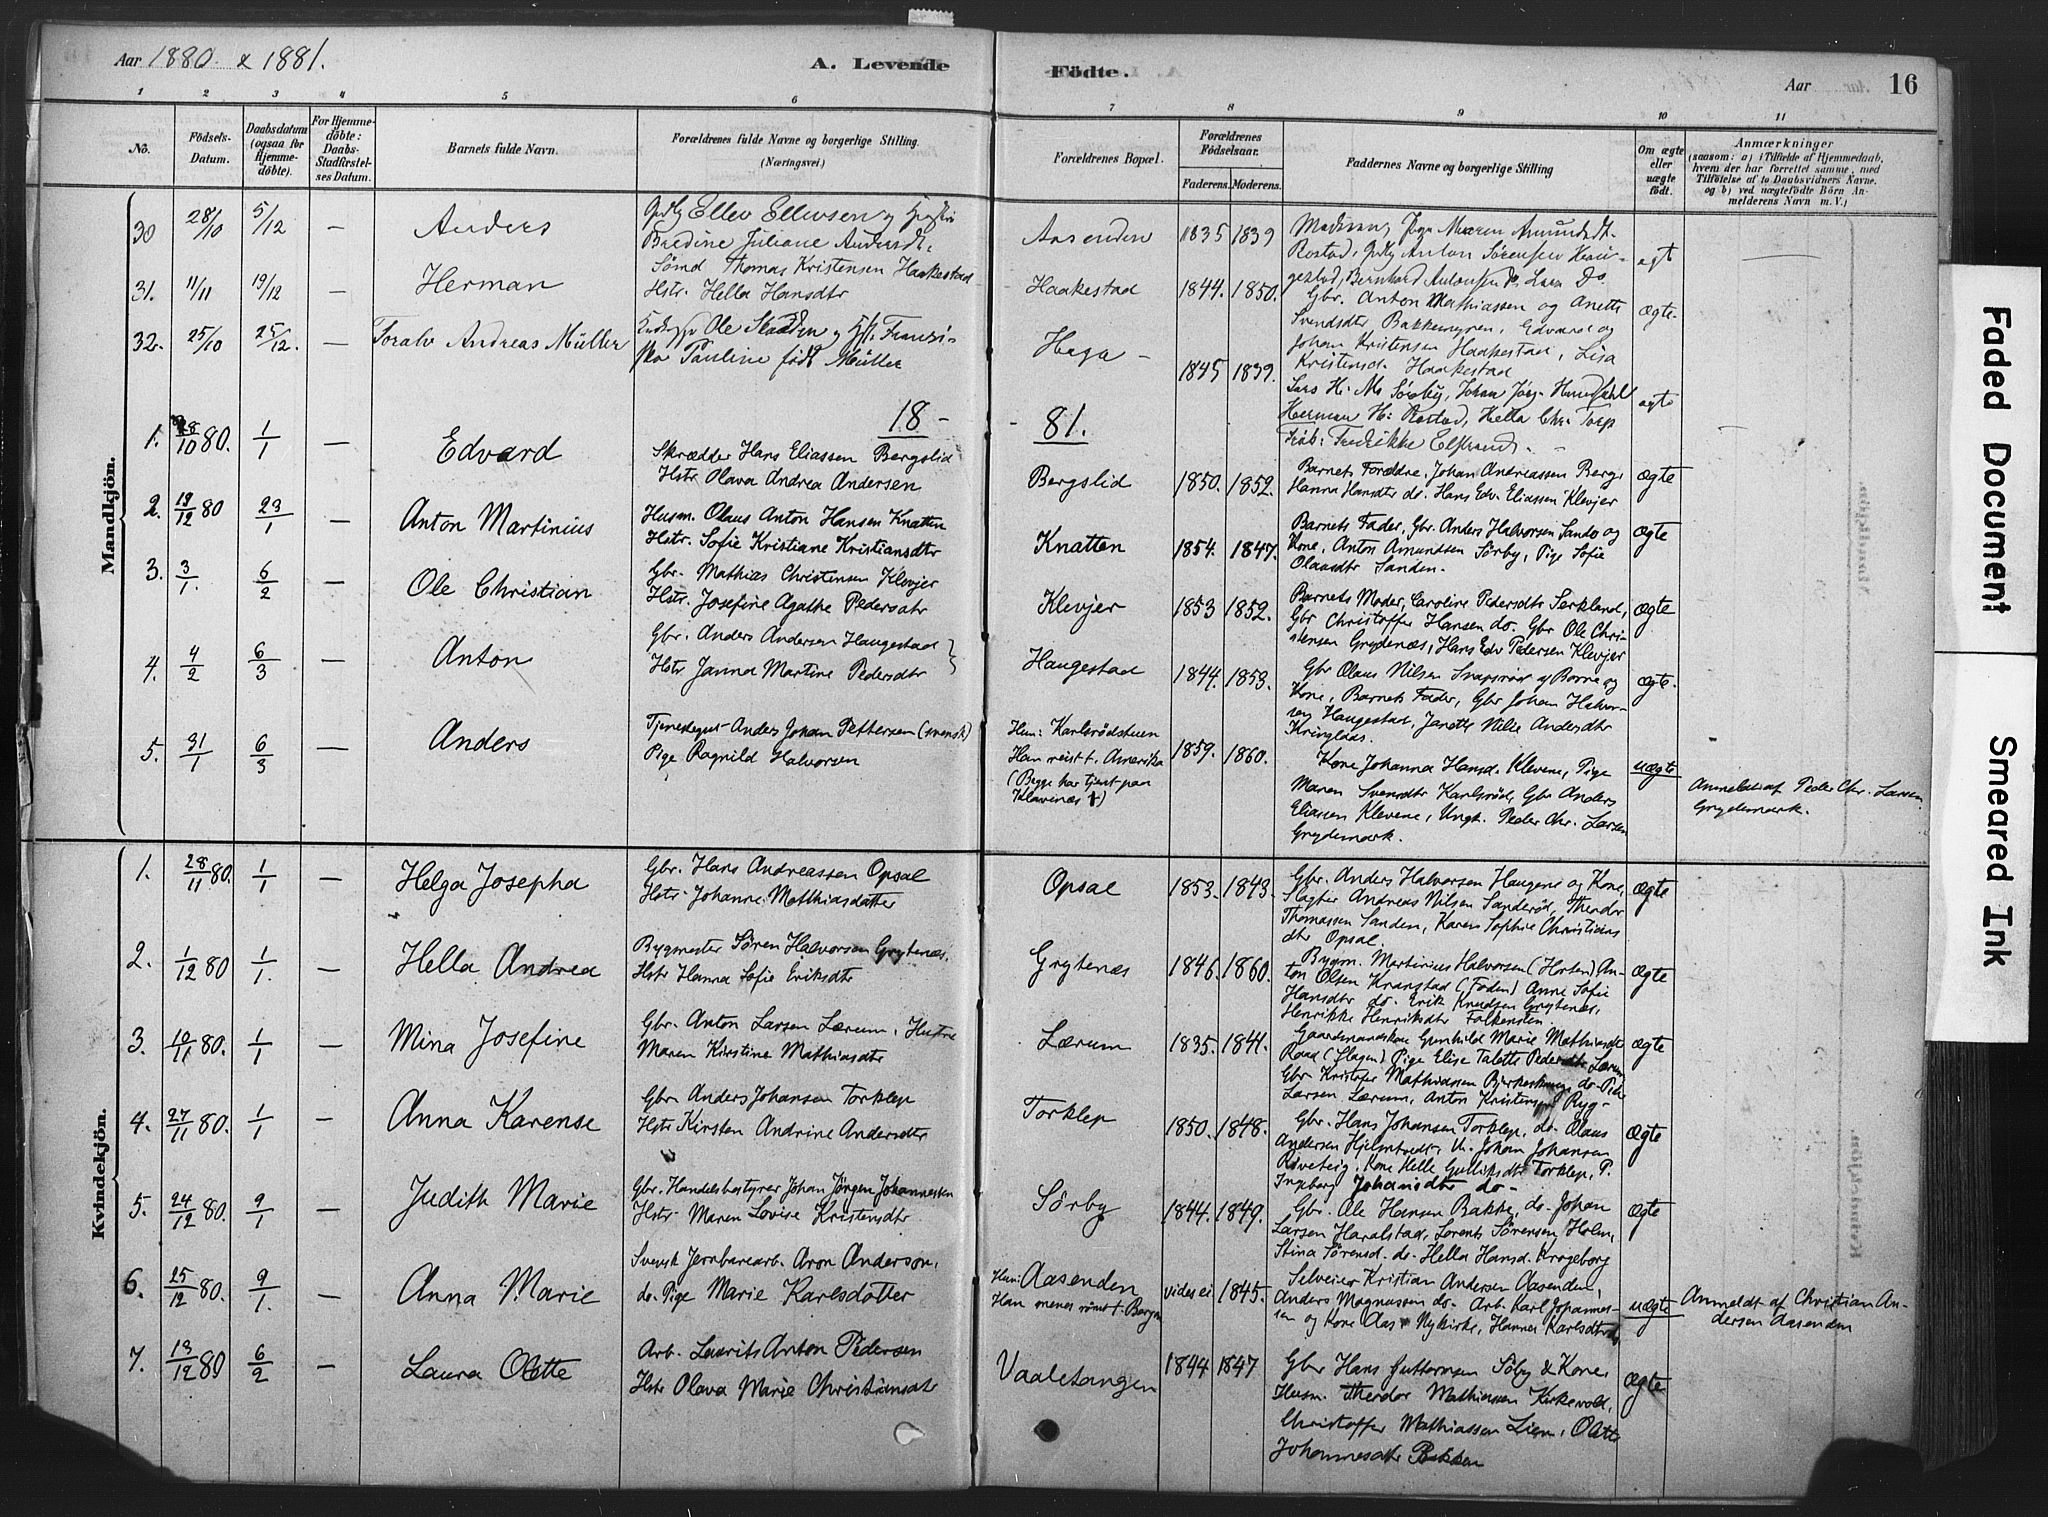 Aar 1880 & 1881.
A. Levende
Födte.
Aar
16
1 2 3 4 5 6 7 8 9 10 11
No.
Födsels-Datum.
Daabsdatum (ogsaa for Hjemmedöbte).
For Hjemmedöbte: Daabs-Stadfæstelses Datum.
Barnets fulde Navn.
Forældrenes fulde Navne og borgerlige Stilling.
(Næringsvei)
Forældrenes Bopæl.
Forældrenes Födselsaar.
Faderens. Moderens.
Faddernes Navne og borgerlige Stilling
Om ægte eller uægte födt.
Anmærkninger
(saasom: a) i Tilfælde af Hjemmedaab, hvem der har forrettet samme, med Tilföielse af to Daabsvidners Navne, og b) ved uægtefödte Börn Anmelderens Navn m. V.)
Mandkjön.
30 28/10 5/12 — Anders
Ellev Ellevsen og
Bredine Juliane Andersdt.
Aasenden 1835 1839
Maren Amundsdt.
Rostad, Anton Sörensen
ægt
31. 11/11 19/12 — Herman
Sömd Thomas Kristensen Haakestad
Hstr. Hella Hansdtr
Haakestad 1844. 1850.
Gbr. Anton Mathiassen og Anette
Svendsdtr Bakkemyren, Edvard og
Johan Kristensen Haakestad, Lisa
Kristensd. Haakestad
ægte
32. 25/10 25/12. — Toralv Andreas Müller
Ole Skadden og
Pauline födt Müller
Haga — 1845 1839.
Johan Jörg.
Herman H. Rostad, Hella Chr. Torp
Fredrikke Elstrand.
ægte
18 — 81.
1. 28/10 80. 1/1 — Edvard
Skrædder Hans Eliassen Bergslid
Hstr Olava Andrea Andersen
Bergslid 1850. 1852.
Barnets Forældre, Johan Andreassen Berg,
Hanna Hansdtr do. Hans Edv. Eliassen Klevjer
Ægte
2. 19/12 80 23/1 — Anton Martinius
Husm. Olaus Anton Hansen Knatten
Hstr. Sofie Kristiane Kristiansdtr
Knatten 1854. 1847.
Barnets Fader, Gbr. Anders Halvorsen Sando og
Kone, Anton Amundsen Sörby, Pige Sofie
Olausdtr Sanden.
Ægte
3. 3/1. 6/2 — Ole Christian
Gbr. Mathias Christensen Klevjer
Hstr. Josefine Agathe Pedersdtr
Klevjer 1853 1852.
Barnets Moder, Caroline Pedersdtr Serkland,
Gbr Christoffer Hansen do. Gbr Ole Chri-
stensen Grydenæs, Hans Edv Pedersen Klevjer
Ægte
4. 4/2 6/3 — Anton
Gbr. Anders Andersen Haugestad
Hstr Janna Martine Pedersdtr
Haugestad 1844. 1853.
Gbr Olaus Nilsen Snapsröd og
Kone, Barnets Fader, Gbr Johan Halvor-
sen Haugestad, Janette Nilie Andersdtr
Kringlaas.
ægte.
5. 31/1 6/3 — Anders
Tjenestegut Anders Johan Pettersen (svensk)
Pige Ragnild Halvorsen
Hun: Karlsrödstuen
Han reist t. Amerika
(Begge har tjent paa
Klavenæs)
1859. 1860.
Kone Johanna Hansd. Klevene, Pige
Maren Svensdtr Karlsröd, Gbr Anders
Eliassen Klevene, Ungk. Peder Chr. Larsen
Grydemark.
uægte
Anmeldt af Peder Chr. Larsen
Grydemark.
Kvindekjön.
1. 28/11 80. 1/1 — Helga Josepha
Gbr. Hans Andreassen Opsal
Hstr Johanne Matthiasdatter
Opsal 1853. 1843.
Gbr. Anders Halvorsen Haugene og Kone,
Slagter Andreas Nilsen Sanderöd, Theodor
Thomassen Sanden, Karen Sophie Christians
dtr Opsal.
Ægte
2. 1/12 80 1/1. — Hella Andrea
Bygmester Sören Halvorsen Grytenæs.
Hstr Hanna Sofie Eriksdtr
Grytenæs 1846. 1860.
Bygm. Martinius Halvorsen (Horten) An-
ton Olsen Kranstad (Foden) Anne Sofie
Hansdtr do. Erik Knudsen Grytenæs,
Henrikke Henriksdtr Falkensten.
Ægte
3. 10/11 80. 1/1 — Mina Josefine
Gbr. Anton Larsen Lærum, Hustru
Maren Kirstine Mathiasdtr
Lærum 1835. 1841.
Gaardmandskone Gunhild Marie Mathiasdtr
Raad (Slagen) Pige Elise Talette Pedersdtr Lærum
Gbr Kristofer Mathiassen
Larsen Lærum, Anton Kristensen Ryg-
Ægte
4. 27/11 80. 1/1 — Anna Karense
Gbr Anders Johansen Torklep
Hstr Kirsten Andrine Andersdtr
Torklep 1850. 1848.
Gbr. Hans Johansen Torklep, do. Olaus
Andersen Hjelmtvedt, U. Johan Johansen
Röveteig, Kone Helle Gulliksdtr Torklep, P.
Ingeborg Johansdtr do —
Ægte
5. 24/12 80. 9/1 — Judith Marie
Gbr. Handelsbestyrer Johan Jörgen Johannesen
Hstr. Maren Lovise Kristensdtr
Sörby 1844. 1849.
Gbr. Ole Hansen Bakke, do. Johan
Larsen Haralstad, Lorents Sörensen Holm,
Stina Sörensd. do. Hella Hansd. Krogeborg
Ægte
6. 25/12 80. 9/1. — Anna Marie
Svensk Jernbanearb. Aron Anderson,
do. Pige Marie Karlsdotter
Hun: Aasenden
Han menes römt t. Bergen
vides ei 1845.
Selveier Kristian Andersen Aasenden,
Anders Magnussen do. Arb. Karl Johannes-
sen og Kone Aas Nykirke, Hanna Karlsdtr do
uægte
Anmeldt af Christian An-
dersen Aasenden
7. 13/12 80 6/2 — Laura Olette
Arb. Laurits Anton Pedersen
Hstr Olava Marie Christiansdtr
Vaaletangen 1844 1847
Gbr Hans Guttormsen Söby & Kone,
Husm. Theodor Mathiassen Kirkevold,
Christoffer Mathiassen Lien, Olette
Johannesdtr Bakken
Ægte
Faded Document
Smeared Ink